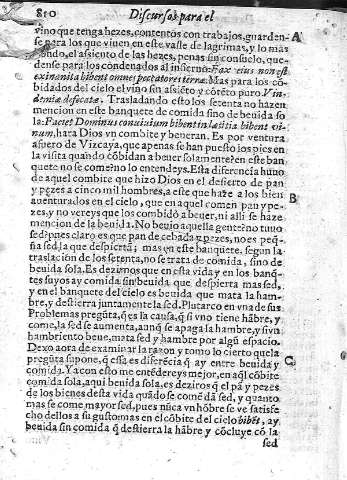 810 Discursos para el
vino que tenga hezes, contentos con trabajos, guarden- A
se para los que viuen en este valle de lagrimas, y lo mas
hondo, el assiento de las hezes, penas sin consuelo, quedense
para los condenados al infierno. Fæx eius non est
exinanita bibent omnes peccatores terræ. Mas para los cõ-
bidados del cielo el vino sin assiẽto y corẽto puro. Vin-
demiæ defecatæ. Trasladando esto los setenta no hazen
mencion en este banquete de comida sino de beuida so
la: Faciet Dominus conuiuium bibent in lætitia bibent vi-
num, hara Dios vn combite y beueran. Es por ventura
a fuero de Vizcaya, que apenas se han puesto los pies en
la visita quando cõbidan a beuer solamente? en este ban
quete no se come? no lo entendeys. Esta diferencia huuo
de aquel combite que hizo Dios en el desierto de pan
y pezes a cinco mil hombres, a este que haze a los bien B
auenturados en el cielo, que en aquel comen pan y pe-
zes, y no vereys que los combidò a beuer, ni alli se haze
mencion de la beuida. No beuio aquella gente? no tuuo
sed? pues claro es que pan de cebada y pezes, no es peq̃-
ña sed la que despiertã; mas en este banquete, segun la
traslacion de los setenta, no se trata de comida, sino de
beuida sola. Es dezirnos que en esta vida y en los banq̃-
tes suyos ay comida sin beuida que despierra mas sed,
y en el banquete del cielo es beuida que mata la ham-
bre, y destierra juntamente la sed. Plutarco en vna de sus
Problemas pregũta, q̃ es la causa, q̃ si vno tiene hãbre, y
come, la sed se aumenta, aunq̃ se apaga la hambre, y si vn
hambriento beue, mata sed y hambre por algũ espacio.
Dexo aora de examinar la razon y tomo lo cierto que la
pregũta supone, q̃ essa es diferẽcia q̃ ay entre beuida y C
comida. Ya con esto me entẽdereys mejor, en aq̃l cõbite
comida sola, aqui beuida sola, es deziros q̃ el pã y pezes
de los bienes desta vida quãdo se comẽ dã sed, y quanto
mas se come mayor sed, pues nũca vn hõbre se ve satisfe
cho dellos a su gusto: mas en el cõbite del cielo bibẽt, ay
beuida sin comida q̃ destierra la hãbre y cõcluye cõ la
sed